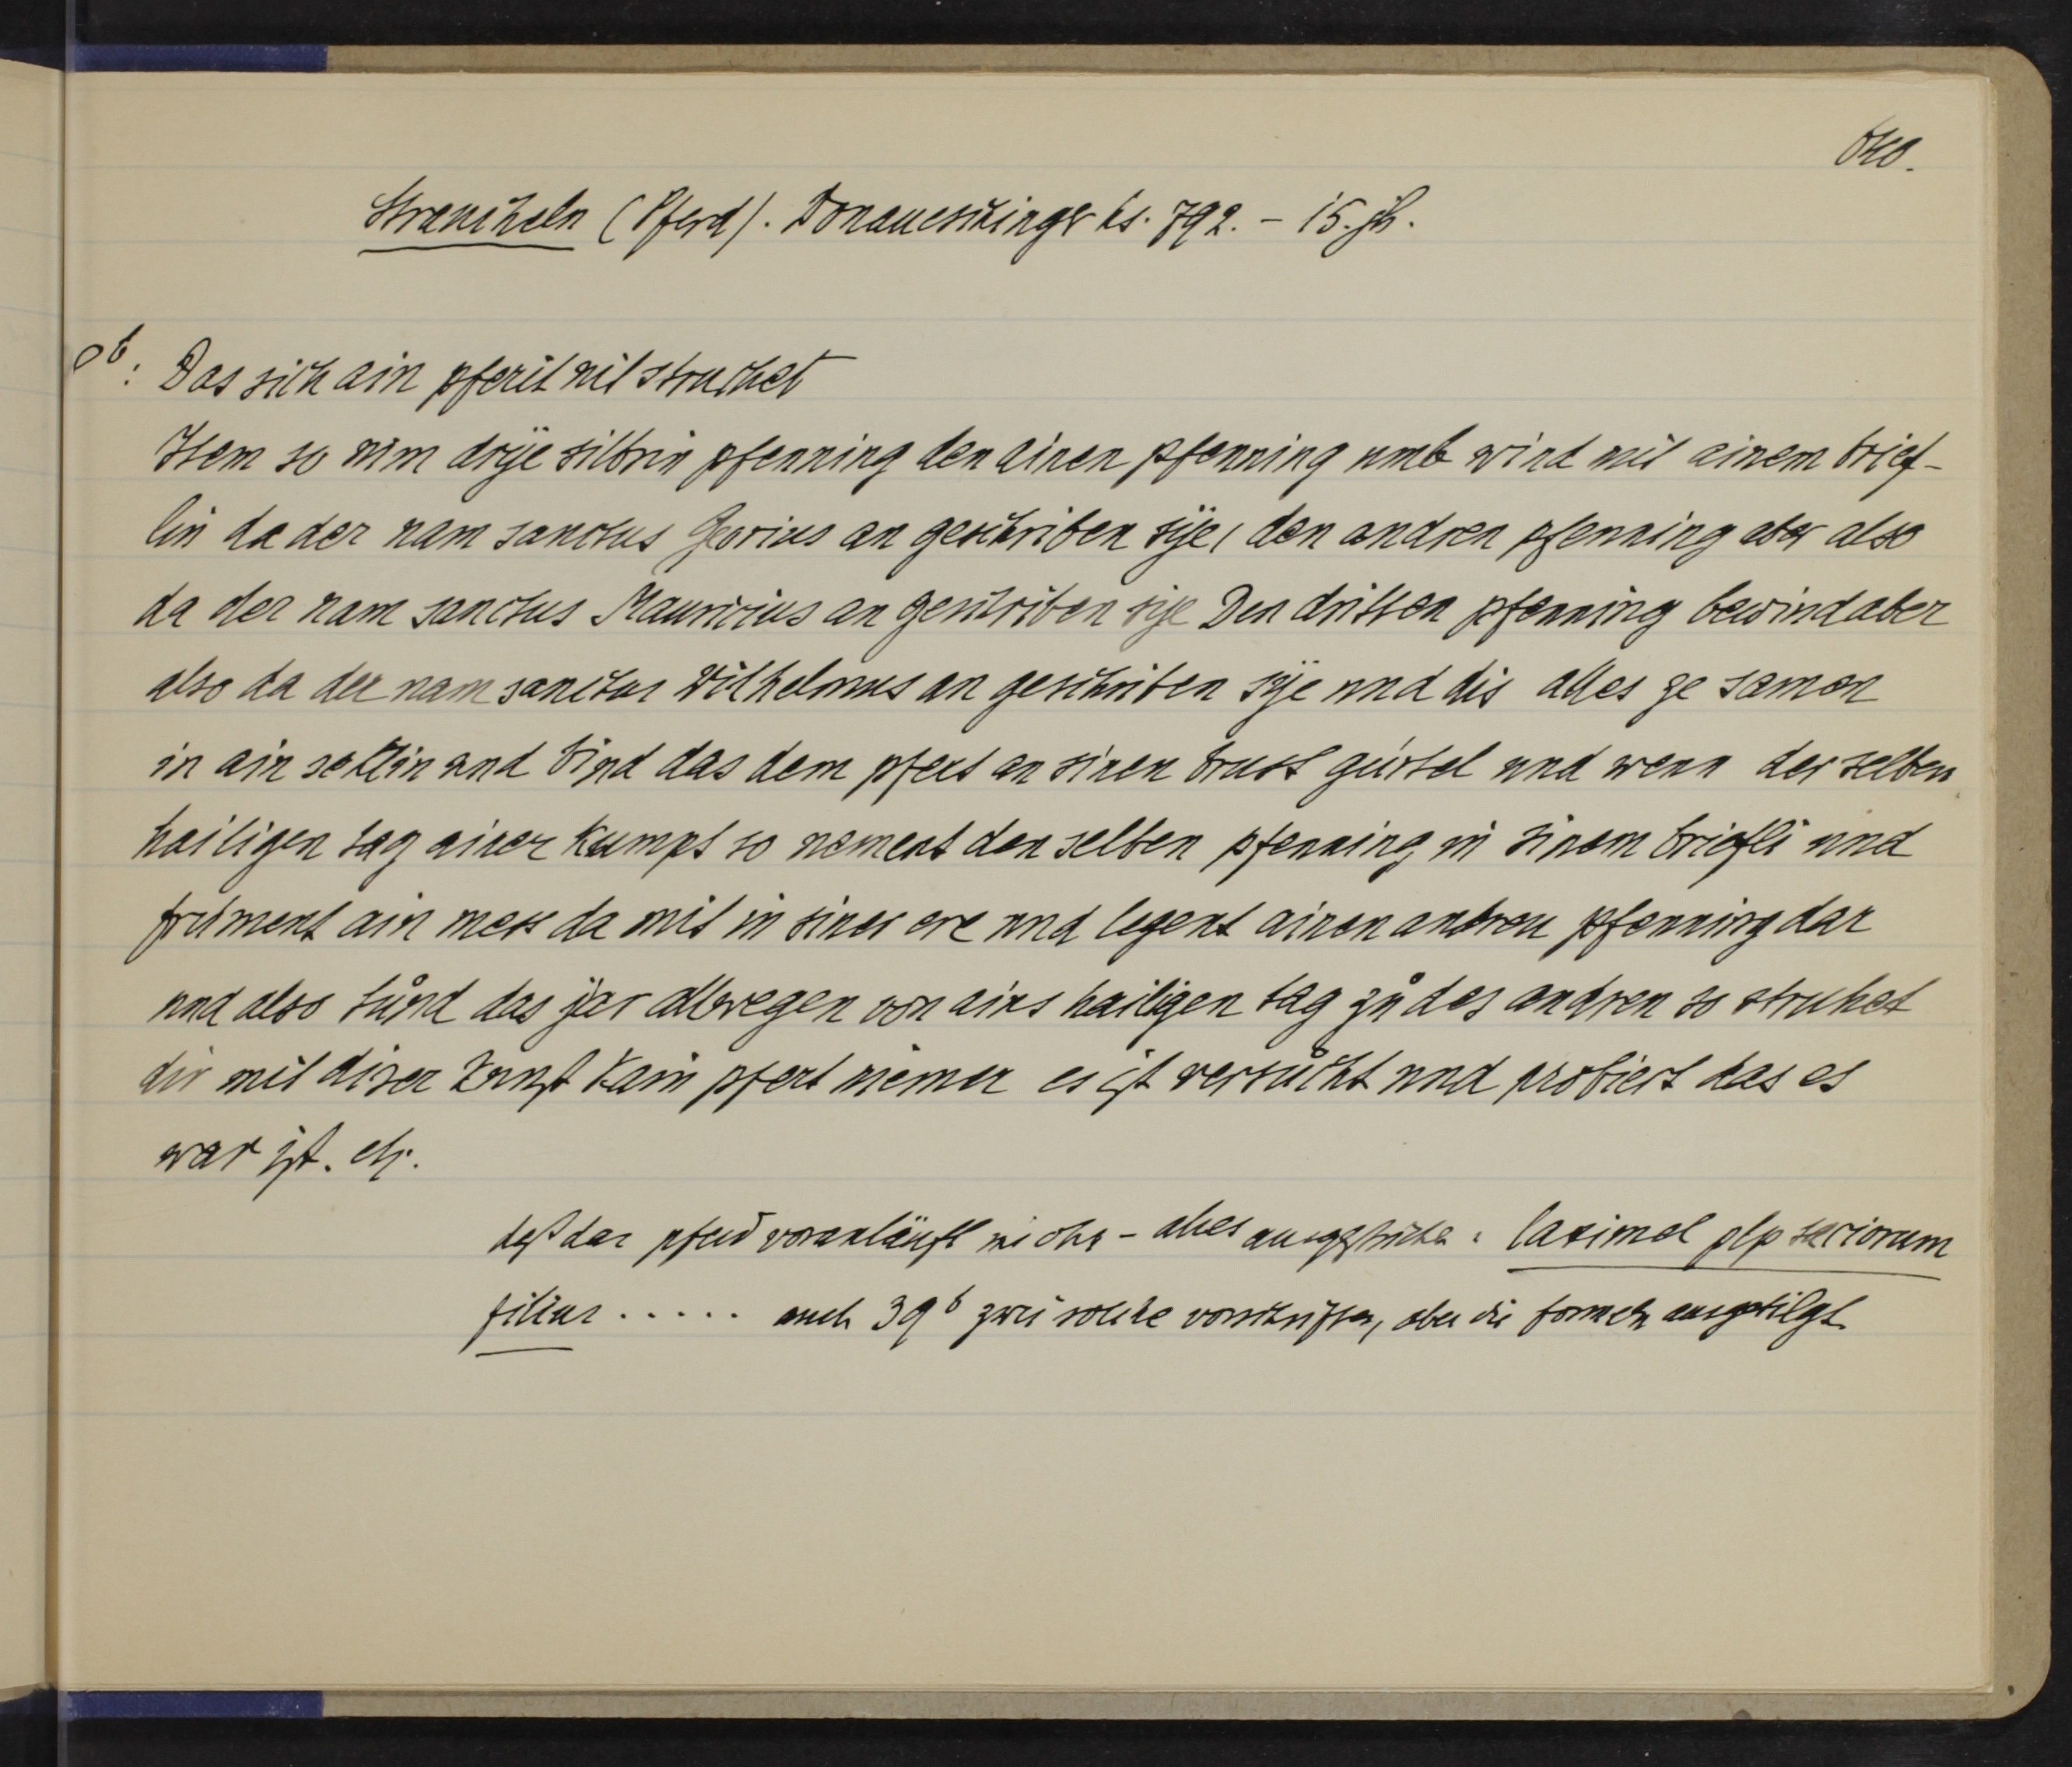 Straucheln (Pferd). Donaueschinger hs. 792. – 15. jh.
Das sich ain pferit nit struchet
Item so nim drÿe silbrin pfenning den ainen pfenning umb wind mit einem brief-
lin da der nam sanctus Georius an geschriben sÿe, den andren pfenning aber also
da der nam sanctus Mauricius an geschriben sÿe Den dritten pfenning bewind aber
also da der nam sanctus Wilhelmus an geschriben sÿe und dis alles ze samen
in ain seklin und bind das dem pfert an sinen brust gürtel und wenn der selben
hailigen tag ainer kumpt so nement den selben pfenning in sinem briefli und
frument ain mess da mit in siner ere und legent ainen andren pfenning dar
und also tůnd das jar allwegen von ains hailigen tag zů des andren so struhet
dir mit diser kunst kain pfert niemer es ist versůcht und probiert das es
war ist. etc.
daß das pferd voranläuft – alles ausgestrichen: caximel plp seriorum
filius ..... auch 39b zwei solche vorschriften, aber die formeln ausgetilgt.